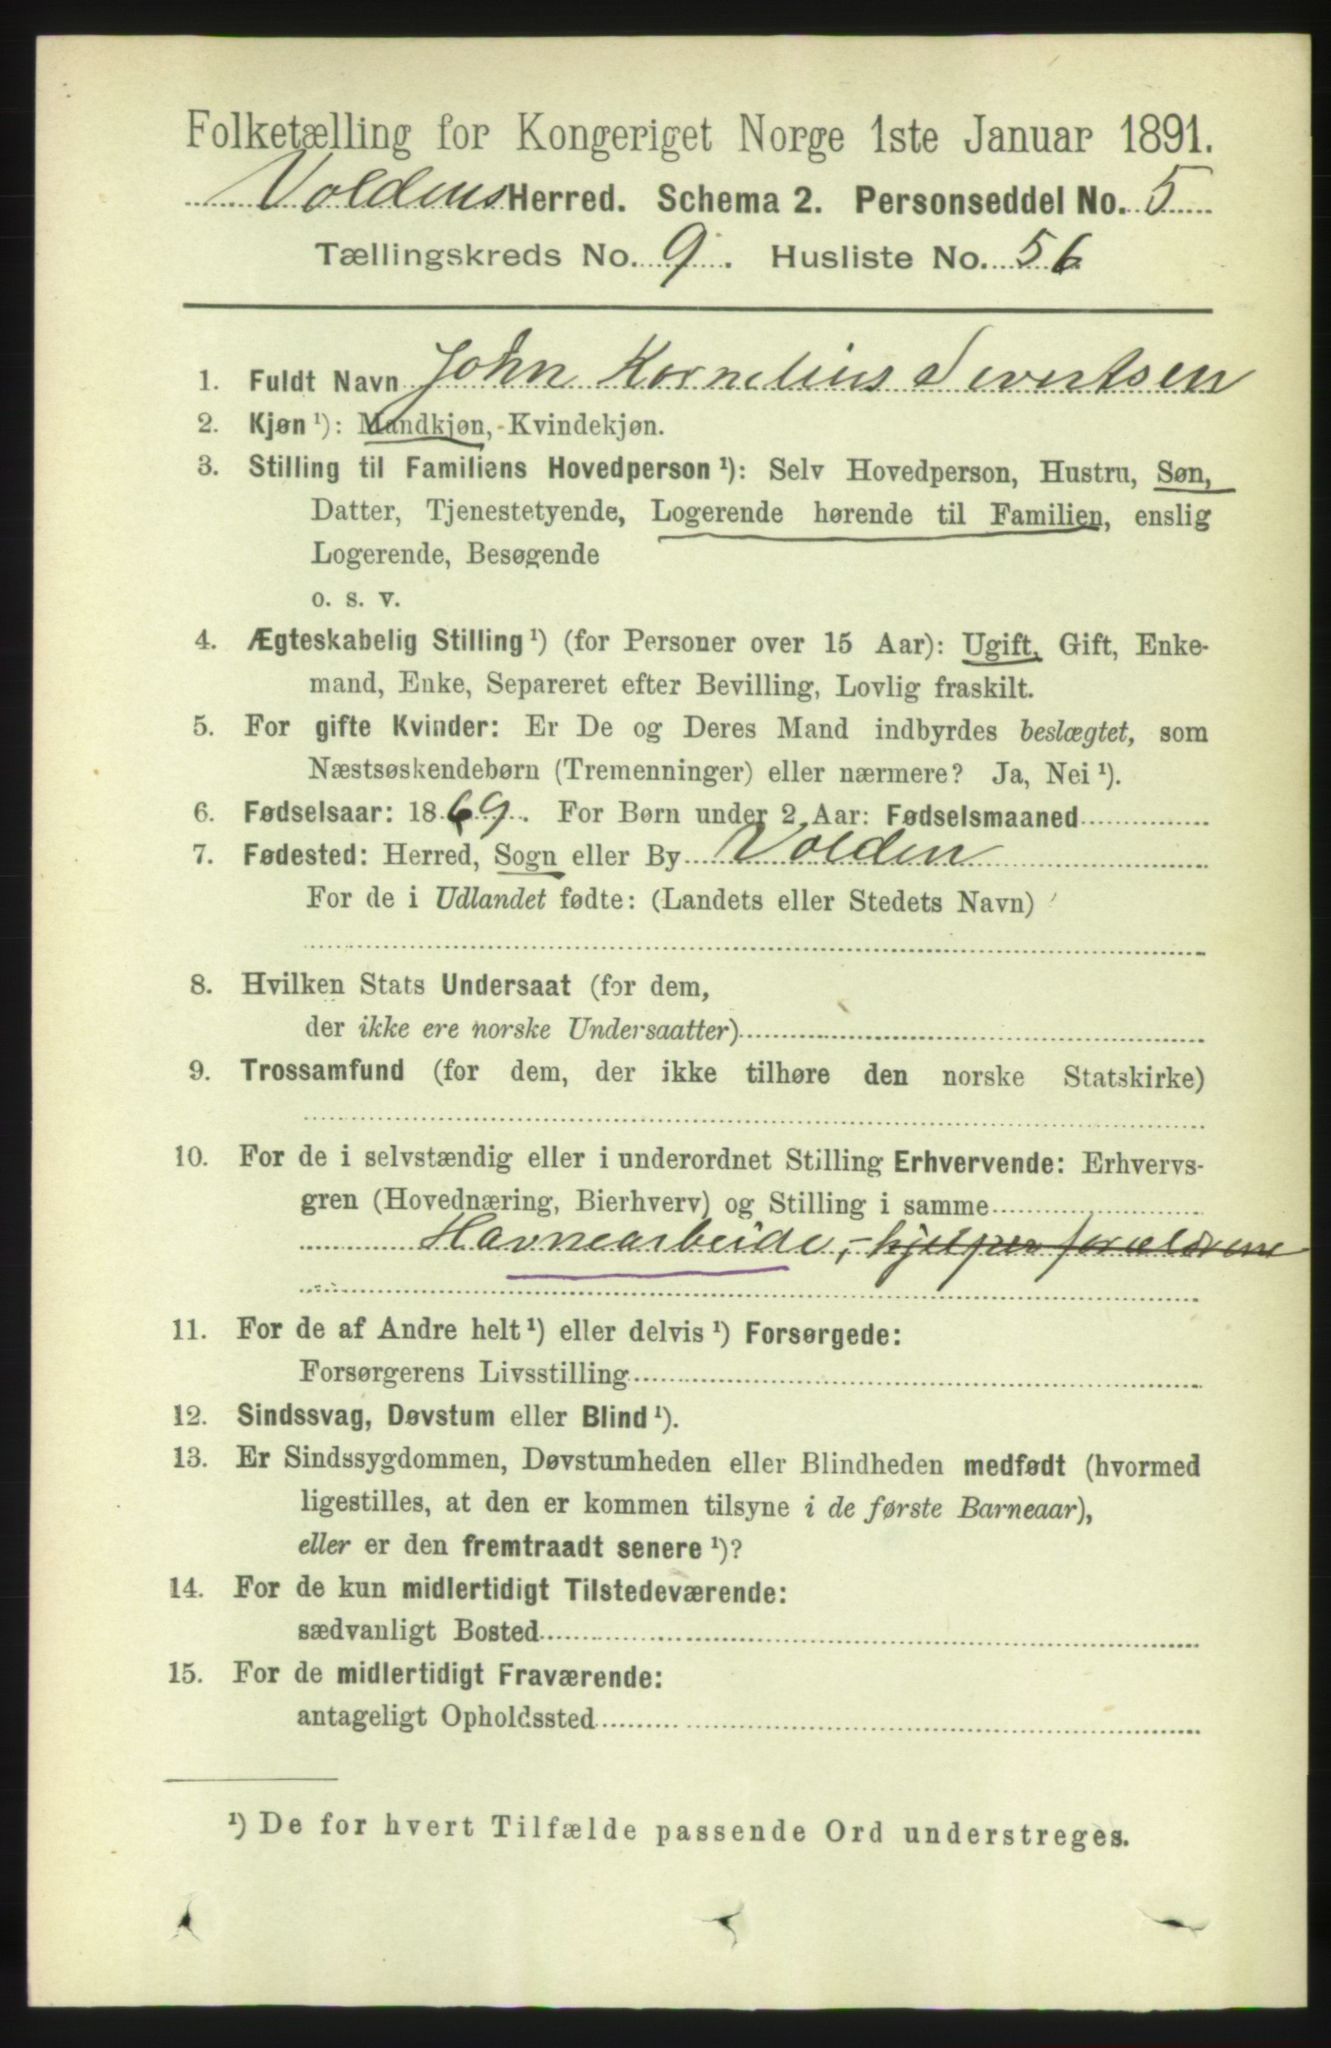 Folketælling for Kongeriget Norge 1ste Januar 1891.
Voldens Herred. Schema 2. Personseddel No. 5
Tællingskreds No. 9. Husliste No. 56
1. Fuldt Navn John Kornelius Sivertsen
2. Kjøn ¹): Mandkjøn, Kvindekjøn.
3. Stilling til Familiens Hovedperson ¹): Selv Hovedperson, Hustru, Søn,
Datter, Tjenestetyende, Logerende hørende til Familien, enslig
Logerende, Besøgende
o. s. v.
4. Ægteskabelig Stilling ¹) (for Personer over 15 Aar): Ugift, Gift, Enke-
mand, Enke, Separeret efter Bevilling, Lovlig fraskilt.
5. For gifte Kvinder: Er De og Deres Mand indbyrdes beslægtet, som
Næstsøskendebørn (Tremenninger) eller nærmere? Ja, Nei ¹).
6. Fødselsaar: 1869. For Børn under 2 Aar: Fødselsmaaned
7. Fødested: Herred, Sogn eller By Volden
For de i Udlandet fødte: (Landets eller Stedets Navn)
8. Hvilken Stats Undersaat (for dem,
der ikke ere norske Undersaatter)
9. Trossamfund (for dem, der ikke tilhøre den norske Statskirke)
10. For de i selvstændig eller i underordnet Stilling Erhvervende: Erhvervs-
gren (Hovednæring, Bierhverv) og Stilling i samme
Havnearbeide, - hjelper forældrene
11. For de af Andre helt ¹) eller delvis ¹) Forsørgede:
Forsørgerens Livsstilling
12. Sindssvag, Døvstum eller Blind ¹).
13. Er Sindssygdommen, Døvstumheden eller Blindheden medfødt (hvormed
ligestilles, at den er kommen tilsyne i de første Barneaar),
eller er den fremtraadt senere ¹)?
14. For de kun midlertidigt Tilstedeværende:
sædvanligt Bosted
15. For de midlertidigt Fraværende:
antageligt Opholdssted
¹) De for hvert Tilfælde passende Ord understreges.